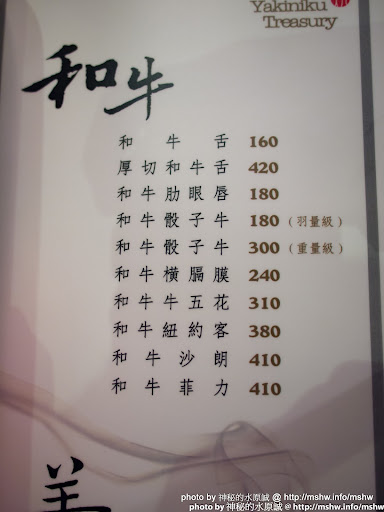 Yakiniku
Treasury
和牛
和牛舌 160
厚切和牛舌 420
和牛肋眼唇 180
和牛骰子牛 180（羽量級）
和牛骰子牛 300（重量級）
和牛橫膈膜 240
和牛牛五花 310
和牛紐約客 380
和牛沙朗 410
和牛菲力 410
photo by 神秘的水原誠 @ http://mshw.info/mshw
photo by 神秘的水原誠 @ http://mshw.info/mshw